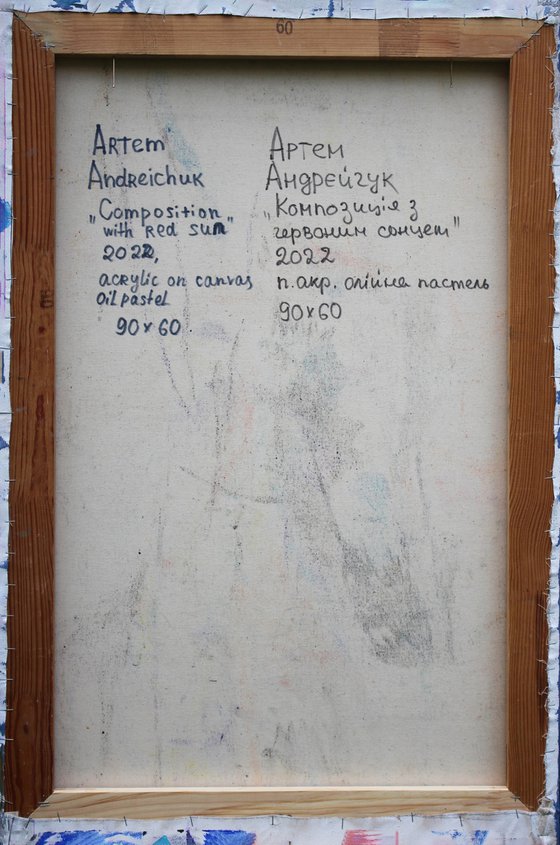 60
Artem
Andreichuk
„Composition
with red sun"
2022,
acrylic on canvas
oil pastel
90x60
Артем
Андрейчук
„Композиція з
червоним сонцем"
2022
п.акр. олійна пастель
90x60